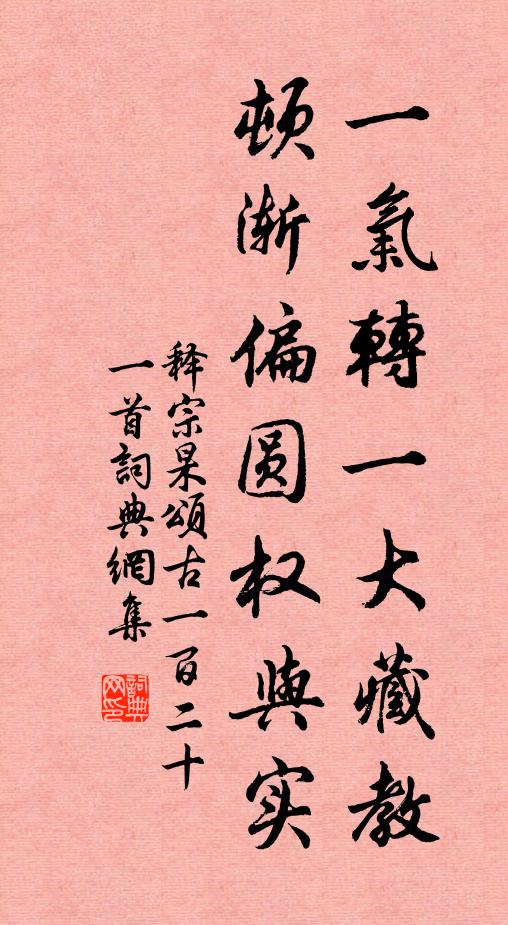 一氣轉一大藏教
頓渐偏圆权與实
释宗杲頌古一百二十
一首詞典網集
詞典网印